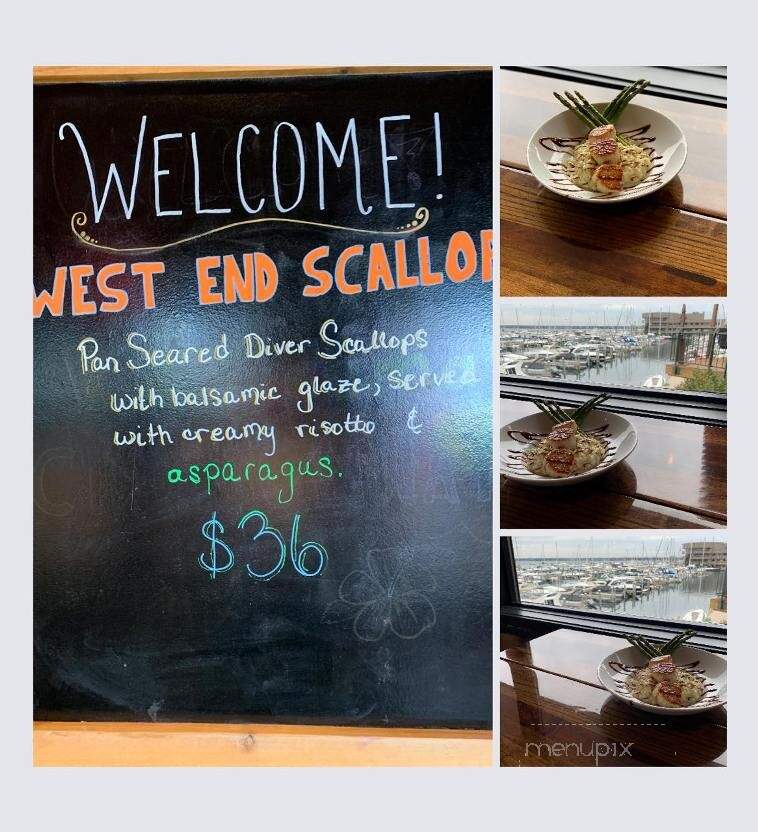 WELCOME!
WEST END SCALLOP
Pan Seared Diver Scallops
with balsamic glaze, served
with creamy risotto &
asparagus.
$36
menupix